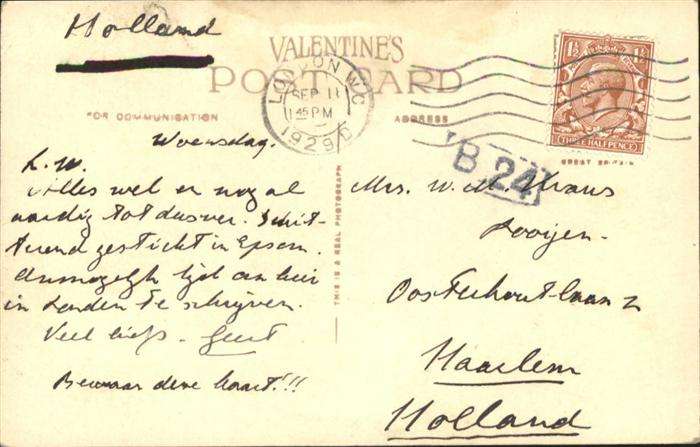 Holland
VALENTINE'S
POST CARD
FOR COMMUNICATION
ADDRESS
LONDON W.C.
SEP 11
1 45 PM
1929
1½ 1½
THREE HALFPENCE
GREAT BRITAIN
B 24
THIS IS A REAL PHOTOGRAPH
Woensdag.
L.W.
Alles wel en nog al
aardig tot dusver. Schit-
terend gesticht in Epsom.
Onmogelijk tijd om hier
in Londen te schrijven.
Veel liefs. Geert
Bewaar deze kaart!!!
Mrs. W. M. Kraus
Looijen.
Oosterhoutlaan 2
Haarlem
Holland